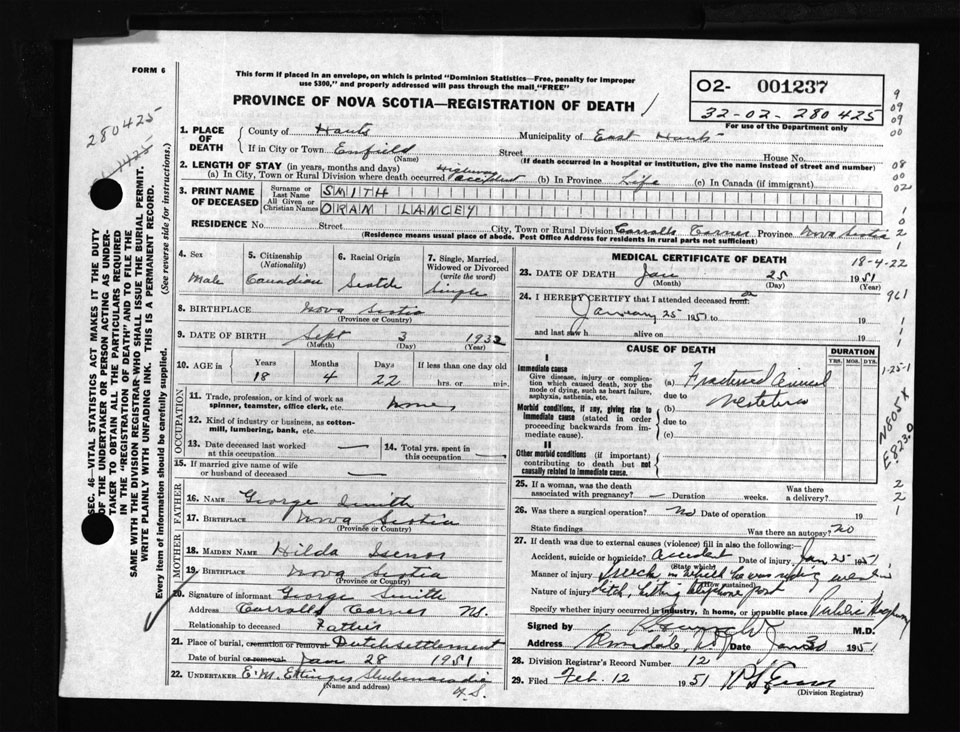 FORM 6
This form if placed in an envelope, on which is printed "Dominion Statistics—Free, penalty for improper
use $300," and properly addressed will pass through the mail "FREE"
PROVINCE OF NOVA SCOTIA—REGISTRATION OF DEATH
02- 001237
32-02-280425
For use of the Department only
280425
SEC. 46—VITAL STATISTICS ACT MAKES IT THE DUTY
OF THE UNDERTAKER OR PERSON ACTING AS UNDER-
TAKER TO OBTAIN ALL THE PARTICULARS REQUIRED
IN THE "REGISTRATION OF DEATH" AND TO FILE THE
SAME WITH THE DIVISION REGISTRAR WHO SHALL ISSUE THE BURIAL PERMIT.
WRITE PLAINLY WITH UNFADING INK. THIS IS A PERMANENT RECORD.
Every item of information should be carefully supplied. (See reverse side for instructions.)
1. PLACE OF DEATH County of Hants Municipality of East Hants
If in City or Town Enfield (Name) Street House No.
(If death occurred in a hospital or institution, give the name instead of street and number)
2. LENGTH OF STAY (in years, months and days)
(a) In City, Town or Rural Division where death occurred Highway accident (b) In Province Life (c) In Canada (if immigrant)
3. PRINT NAME OF DECEASED Surname or Last Name SMITH
All Given or Christian Names ORAM LANCEY
RESIDENCE No. Street City, Town or Rural Division Carrolls Corner Province Nova Scotia
(Residence means usual place of abode. Post Office Address for residents in rural parts not sufficient)
4. Sex Male
5. Citizenship (Nationality) Canadian
6. Racial Origin Scotch
7. Single, Married, Widowed or Divorced (write the word) Single
8. BIRTHPLACE Nova Scotia
(Province or Country)
9. DATE OF BIRTH Sept 3 1932
(Month) (Day) (Year)
10. AGE in Years 18 Months 4 Days 22 If less than one day old hrs. or min.
OCCUPATION
11. Trade, profession, or kind of work as spinner, teamster, office clerk, etc. None
12. Kind of industry or business, as cotton-mill, lumbering, bank, etc.
13. Date deceased last worked at this occupation —
14. Total yrs. spent in this occupation —
15. If married give name of wife or husband of deceased —
FATHER
16. NAME George Smith
17. BIRTHPLACE Nova Scotia
(Province or Country)
MOTHER
18. MAIDEN NAME Hilda Isenor
19. BIRTHPLACE Nova Scotia
(Province or Country)
20. Signature of informant George Smith
Address Carrolls Corner N.S.
Relationship to deceased Father
21. Place of burial, cremation or removal Dutch settlement
Date of burial or removal Jan 28 1951
22. UNDERTAKER E. M. Ettinger Shubenacadie N.S.
(Name and address)
MEDICAL CERTIFICATE OF DEATH
18-4-22
23. DATE OF DEATH Jan 25 1951
(Month) (Day) (Year)
24. I HEREBY CERTIFY that I attended deceased from on
January 25 1951 to 19
and last saw h alive on 19
CAUSE OF DEATH
DURATION
YRS. MOS. DYS.
I
Immediate cause
Give disease, injury or complication which caused death, NOT the mode of dying, such as heart failure, asphyxia, asthenia, etc.
(a) Fractured
due to
Morbid conditions, if any, giving rise to immediate cause (stated in order proceeding backwards from immediate cause).
(b)
due to
(c)
II
Other morbid conditions (if important) contributing to death but not causally related to immediate cause.
25. If a woman, was the death associated with pregnancy? — Duration weeks. Was there a delivery?
26. Was there a surgical operation? No Date of operation 19
State findings Was there an autopsy? No
27. If death was due to external causes (violence) fill in also the following:
Accident, suicide or homicide? Accident Date of injury Jan 25 1951
(State which)
Manner of injury truck in which he was riding went in
(How sustained)
Nature of injury ditch, hitting telephone post
Specify whether injury occurred in industry, in home, or in public place Public Highway
Signed by M.D.
Address Elmsdale, N.S. Date Jan 30 1951
28. Division Registrar's Record Number 12
29. Filed Feb. 12 1951
(Division Registrar)
9
09
09
00
08
00
02
1
0
2
1
961
1
1
1
1-25-1
N805X
E823.0
2
2
1